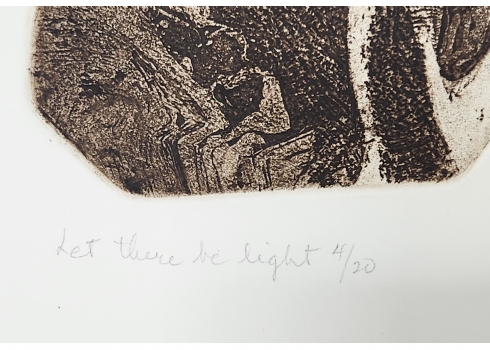 Let there be light 4/20